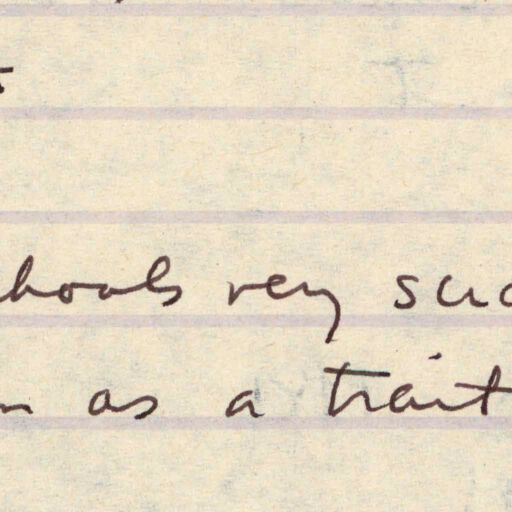 hools very suc
n as a trait